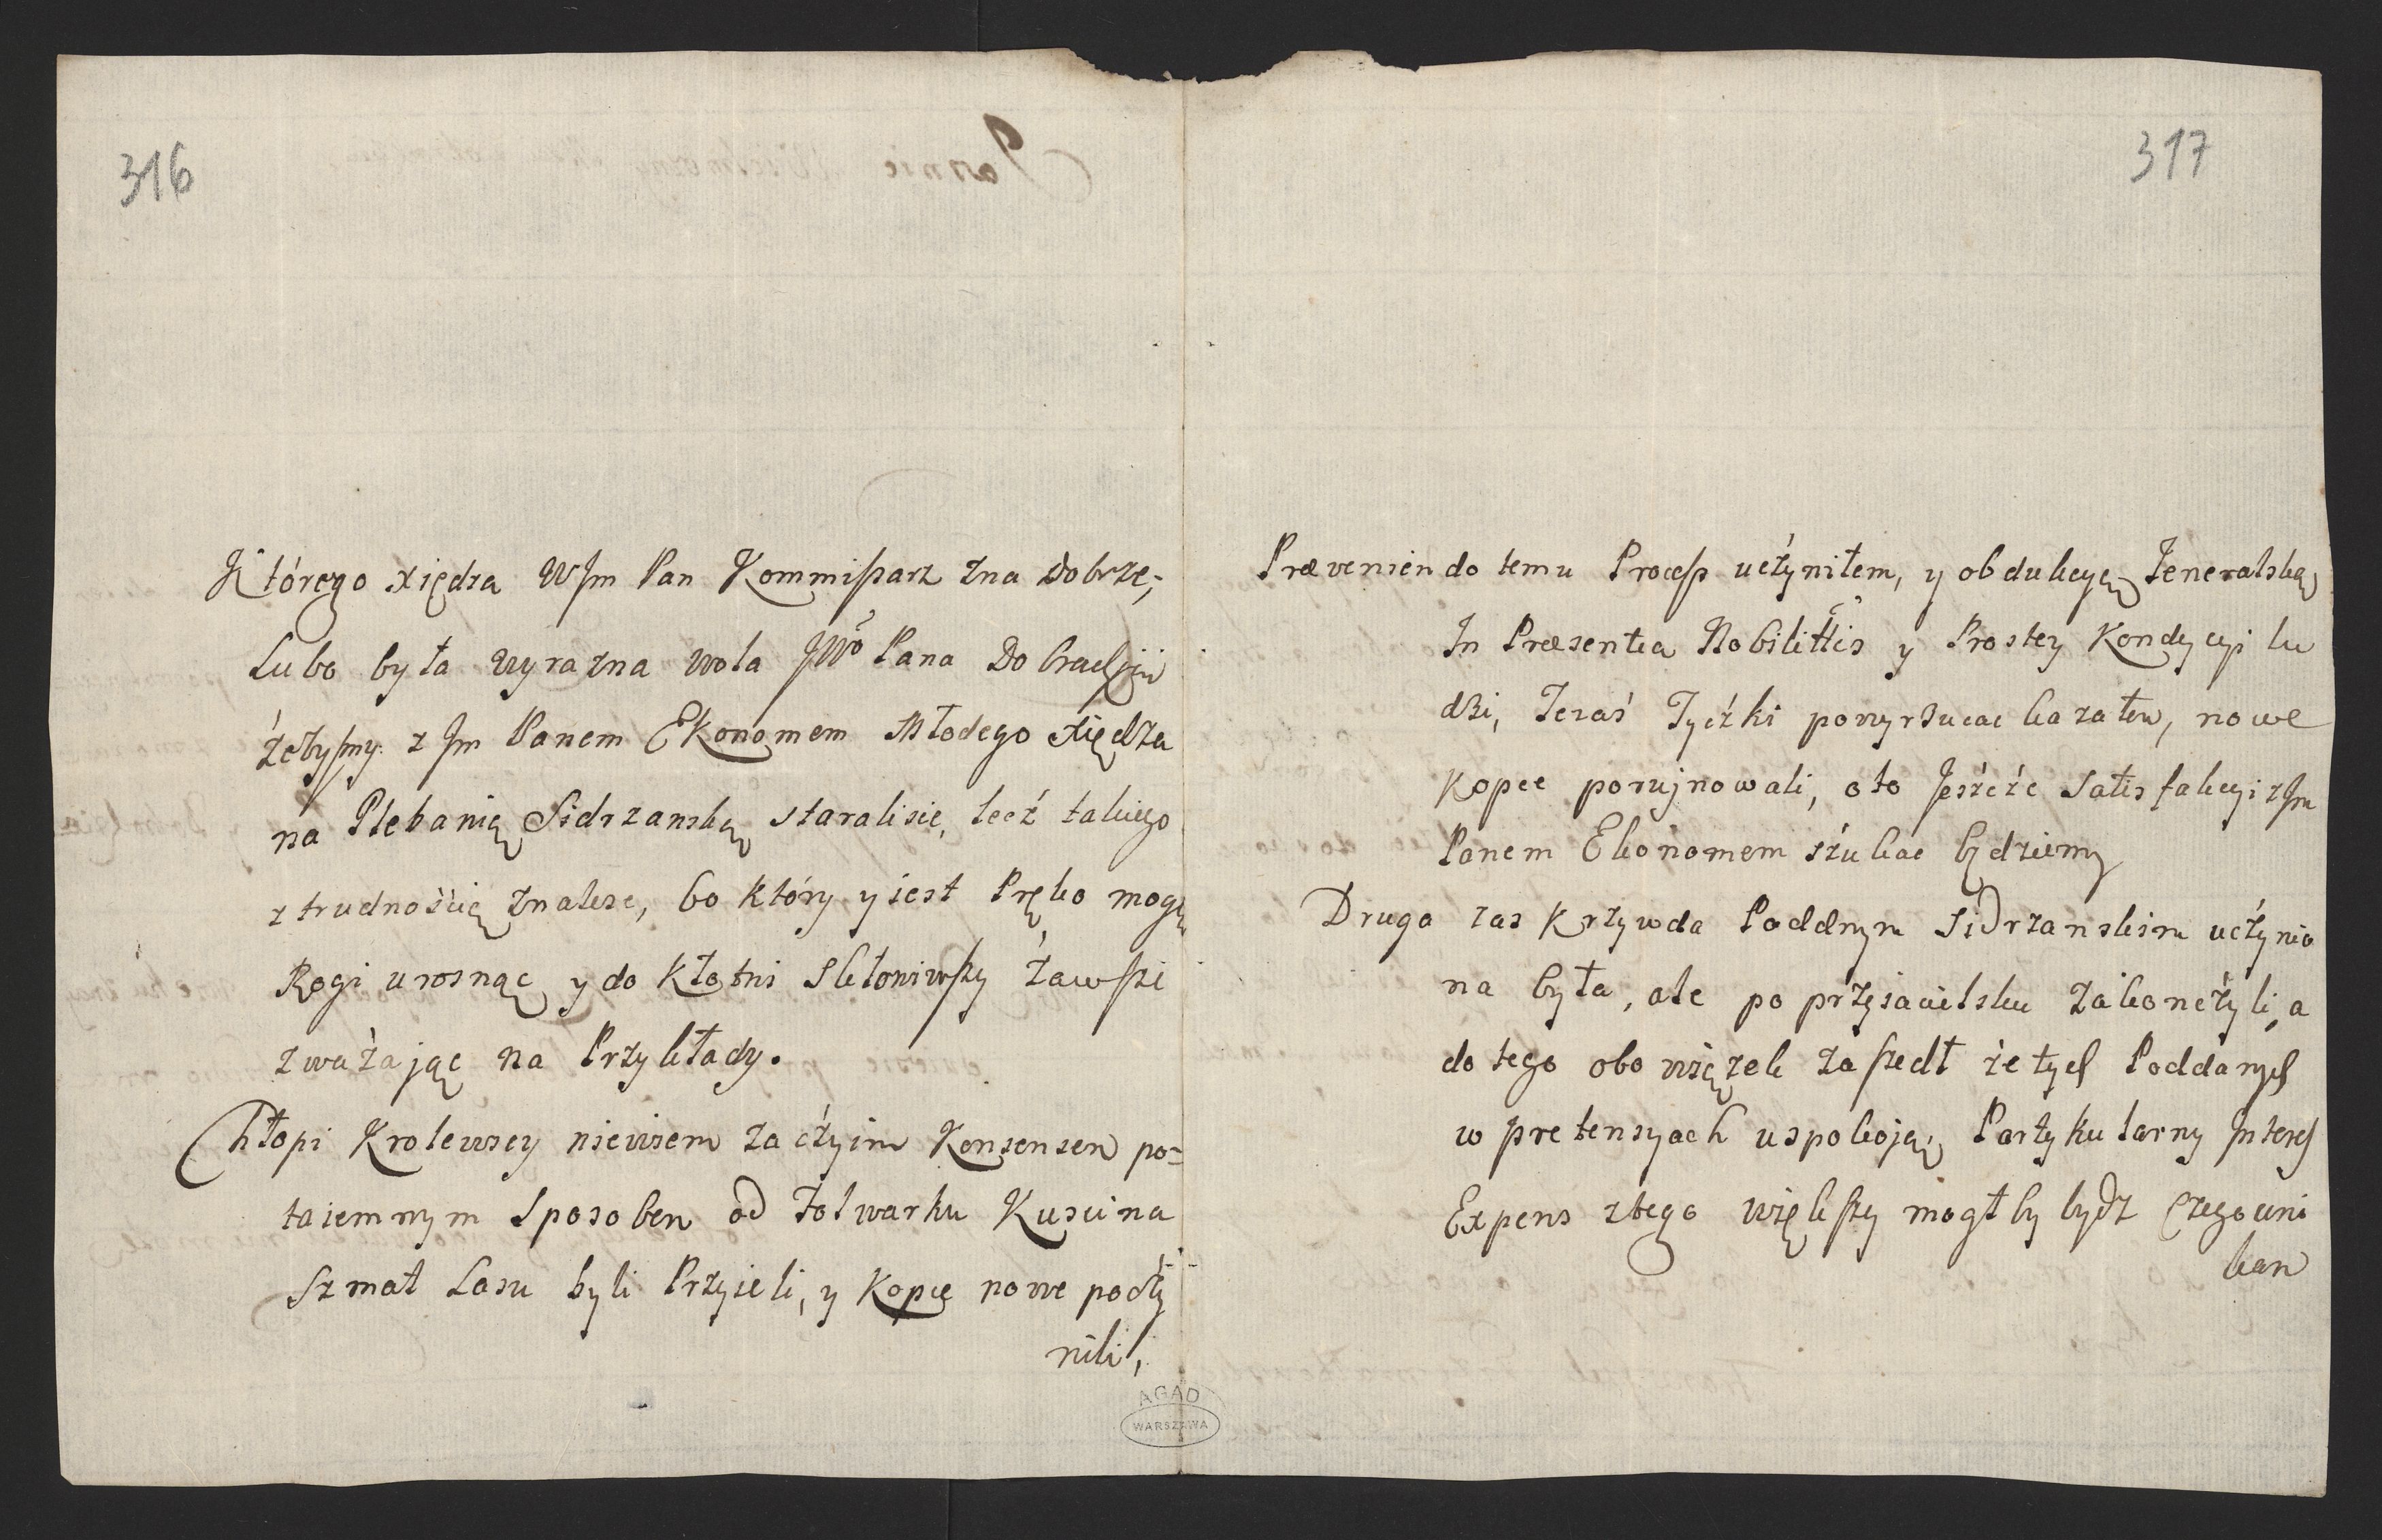 316
Którego xiędza WJm Pan Kommissarz zna Dobrze;
Lubo była wyrazna wola JWo Pana Dobrodzieja
żebysmy z Jm Panem Ekonomem Młodego xiędza
na Plebanią Sidrzanską staralisie, lecż takiego
z trudnośćią znalesc, bo który y jest Pręko mogą
Rogi urosnąc y do Kłotni Skłoniwszy zawsze
zważając na Przykłady.
Chłopi Krolewscy niewiem za cżyim Konsensem po=
taiemnym Sposobem od Folwarku Kuscina
Szmat Lasu byli Przyieli, y Kopce nowe pocży
nili,
317
Præveniendo temu Process ucżyniłem, y obdukcyą Jeneralską
In Præsentia Nobilittis y Prostey Kondycyi lu
dzi, Teraś Tycżki powyrzucac kazałem, nowe
Kopce porujnowali, oto Jeszcże Satisfakcyi z Jm
Panem Ekonomem szukac będziemy
Druga zas Krzywda Poddnym Sidrzanskim ucżynio
na była, ale po przyiacielsku zakoncżyli, a
do tego obowiązek zaszedł że tych Poddanych
w pretensyach uspokoją, Partykularny Interes
Expens z tego większy mogłby bydz Czego uni
kam
AGAD
WARSZAWA